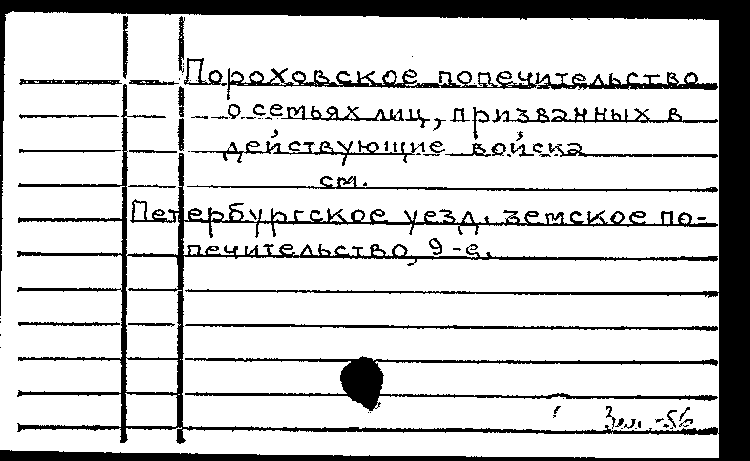 Пороховское попечительство
о семьях лиц, призванных в
действующие войска
см.
Петербургское уезд. земское по-
печительство, 9-е.